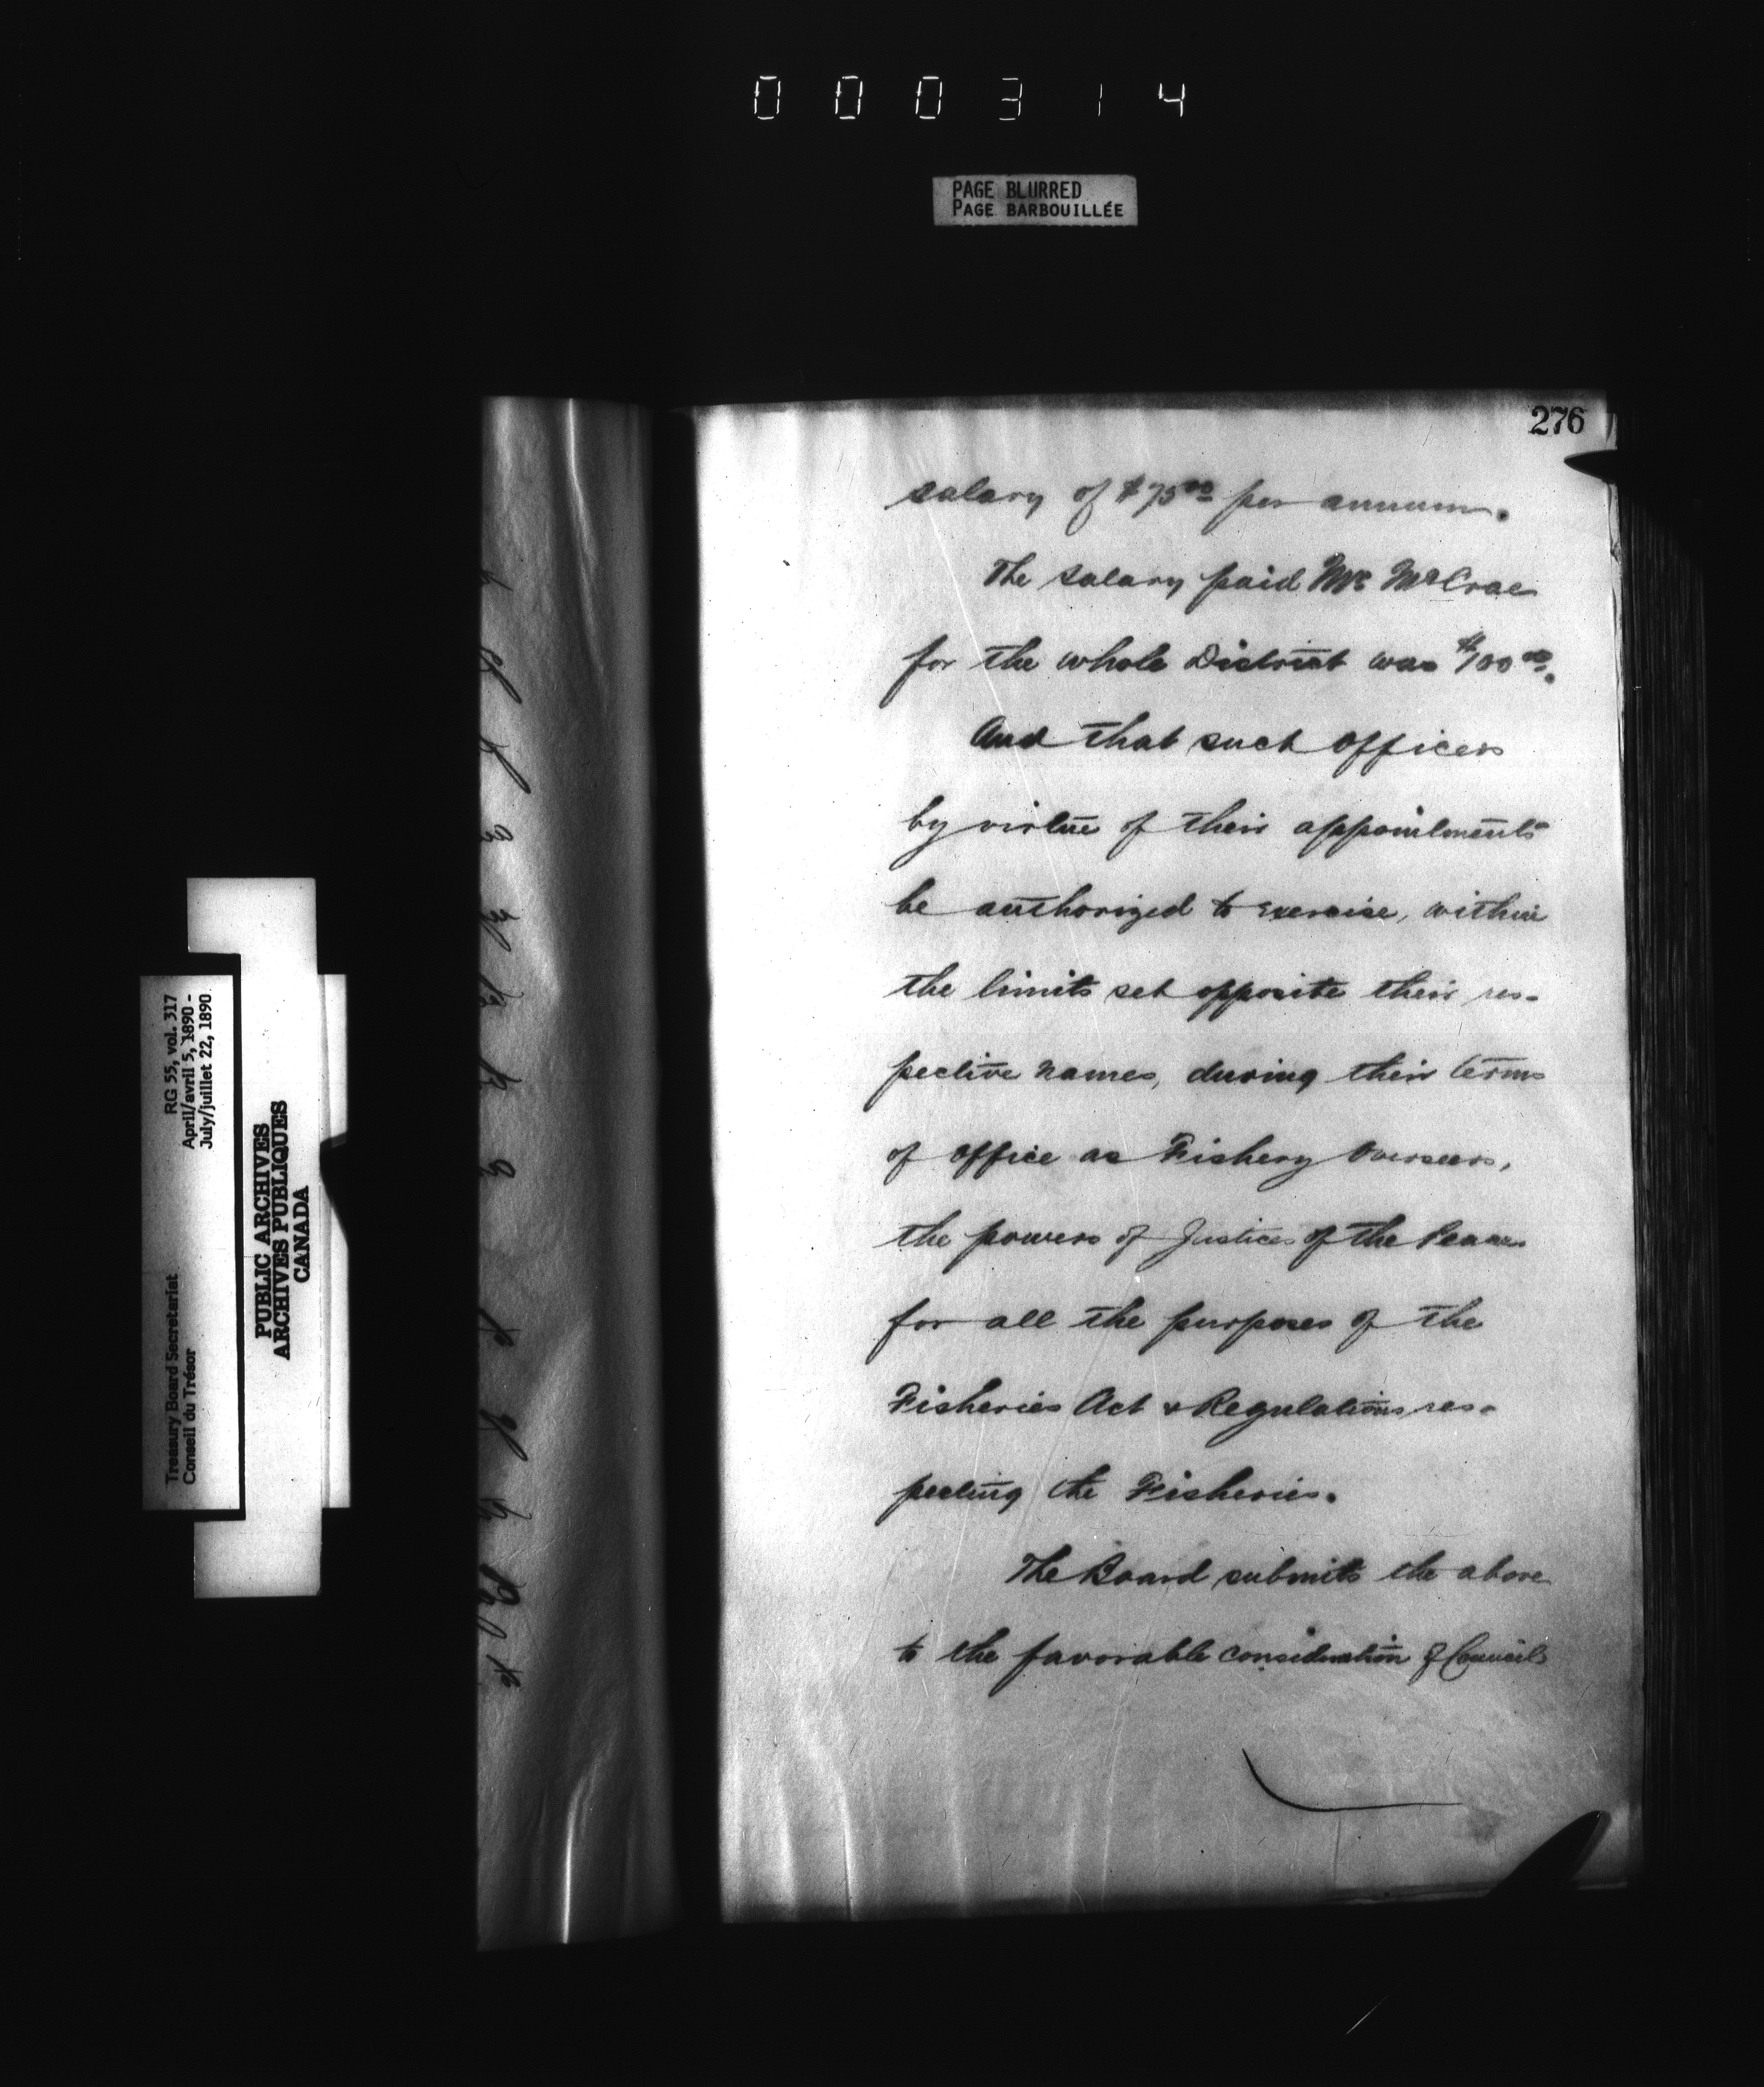 000314
PAGE BLURRED
PAGE BARBOUILLÉE
276
salary of $75.00 per annum.
The salary paid Mr McCrae
for the whole District was $100.00.
And that such Officers
by virtue of their appointments
be authorized to exercise, within
the limits set opposite their res-
pective names, during their terms
of Office as Fishery Overseers,
the powers of Justices of the Peace
for all the purposes of the
Fisheries Act & Regulations res-
pecting the Fisheries.
The Board submits the above
to the favorable consideration of Council
RG 55, vol. 317
April/avril 5, 1890 -
July/juillet 22, 1890
Treasury Board Secretariat
Conseil du Trésor
PUBLIC ARCHIVES
ARCHIVES PUBLIQUES
CANADA